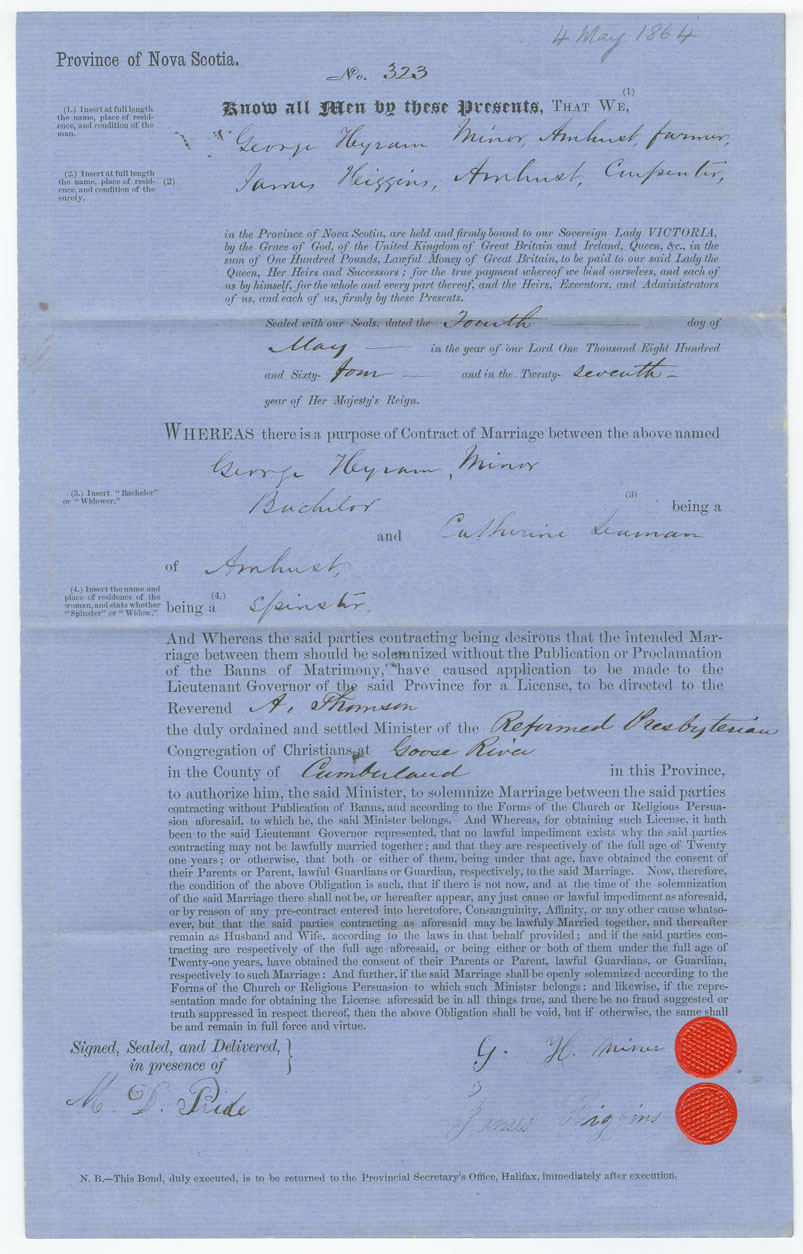 4 May 1864
Province of Nova Scotia.
No. 323
(1.) Insert at full length
the name, place of resid-
ence, and condition of the
man.
Know all Men by these Presents, THAT WE, (1)
George Hyram Minor, Amhust, farmer,
(2.) Insert at full length
the name, place of resid-
ence, and condition of the
surety.
(2) James Higgins, Amhust, Carpenter,
in the Province of Nova Scotia, are held and firmly bound to our Sovereign Lady VICTORIA,
by the Grace of God, of the United Kingdom of Great Britain and Ireland, Queen, &c., in the
sum of One Hundred Pounds, Lawful Money of Great Britain, to be paid to our said Lady the
Queen, Her Heirs and Successors; for the true payment whereof we bind ourselves, and each of
us by himself, for the whole and every part thereof, and the Heirs, Executors, and Administrators
of us, and each of us, firmly by these Presents.
Sealed with our Seals, dated the Fourth day of
May in the year of our Lord One Thousand Eight Hundred
and Sixty-four and in the Twenty-seventh
year of Her Majesty's Reign.
WHEREAS there is a purpose of Contract of Marriage between the above named
George Hyram, Minor
(3.) Insert "Bachelor"
or "Widower."
Bachelor (3) being a
and Catherine Seaman
of Amhust,
(4.) Insert the name and
place of residence of the
woman, and state whether
"Spinster" or "Widow."
being a (4.) Spinster,
And Whereas the said parties contracting being desirous that the intended Mar-
riage between them should be solemnized without the Publication or Proclamation
of the Banns of Matrimony, have caused application to be made to the
Lieutenant Governor of the said Province for a License, to be directed to the
Reverend A. Thomson
the duly ordained and settled Minister of the Reformed Presbyterian
Congregation of Christians at Goose River
in the County of Cumberland in this Province,
to authorize him, the said Minister, to solemnize Marriage between the said parties
contracting without Publication of Banns, and according to the Forms of the Church or Religious Persua-
sion aforesaid, to which he, the said Minister belongs. And Whereas, for obtaining such License, it hath
been to the said Lieutenant Governor represented, that no lawful impediment exists why the said parties
contracting may not be lawfully married together; and that they are respectively of the full age of Twenty
one years; or otherwise, that both or either of them, being under that age, have obtained the consent of
their Parents or Parent, lawful Guardians or Guardian, respectively, to the said Marriage. Now, therefore,
the condition of the above Obligation is such, that if there is not now, and at the time of the solemnization
of the said Marriage there shall not be, or hereafter appear, any just cause or lawful impediment as aforesaid,
or by reason of any pre-contract entered into heretofore, Consanguinity, Affinity, or any other cause whatso-
ever, but that the said parties contracting as aforesaid may be lawfuly Married together, and thereafter
remain as Husband and Wife, according to the laws in that behalf provided; and if the said parties con-
tracting are respectively of the full age aforesaid, or being either or both of them under the full age of
Twenty-one years, have obtained the consent of their Parents or Parent, lawful Guardians, or Guardian,
respectively to such Marriage: And further, if the said Marriage shall be openly solemnized according to the
Forms of the Church or Religious Persuasion to which such Ministsr belongs: and likewise, if the repre-
sentation made for obtaining the License aforesaid be in all things true, and there be no fraud suggested or
truth suppressed in respect thereof, then the above Obligation shall be void, but if otherwise, the same shall
be and remain in full force and virtue.
Signed, Sealed, and Delivered,
in presence of
G. H. Miner
M. D. Pride
James Higgins
N. B.—This Bond, duly executed, is to be returned to the Provincial Secretary's Office, Halifax, immediately after execution.